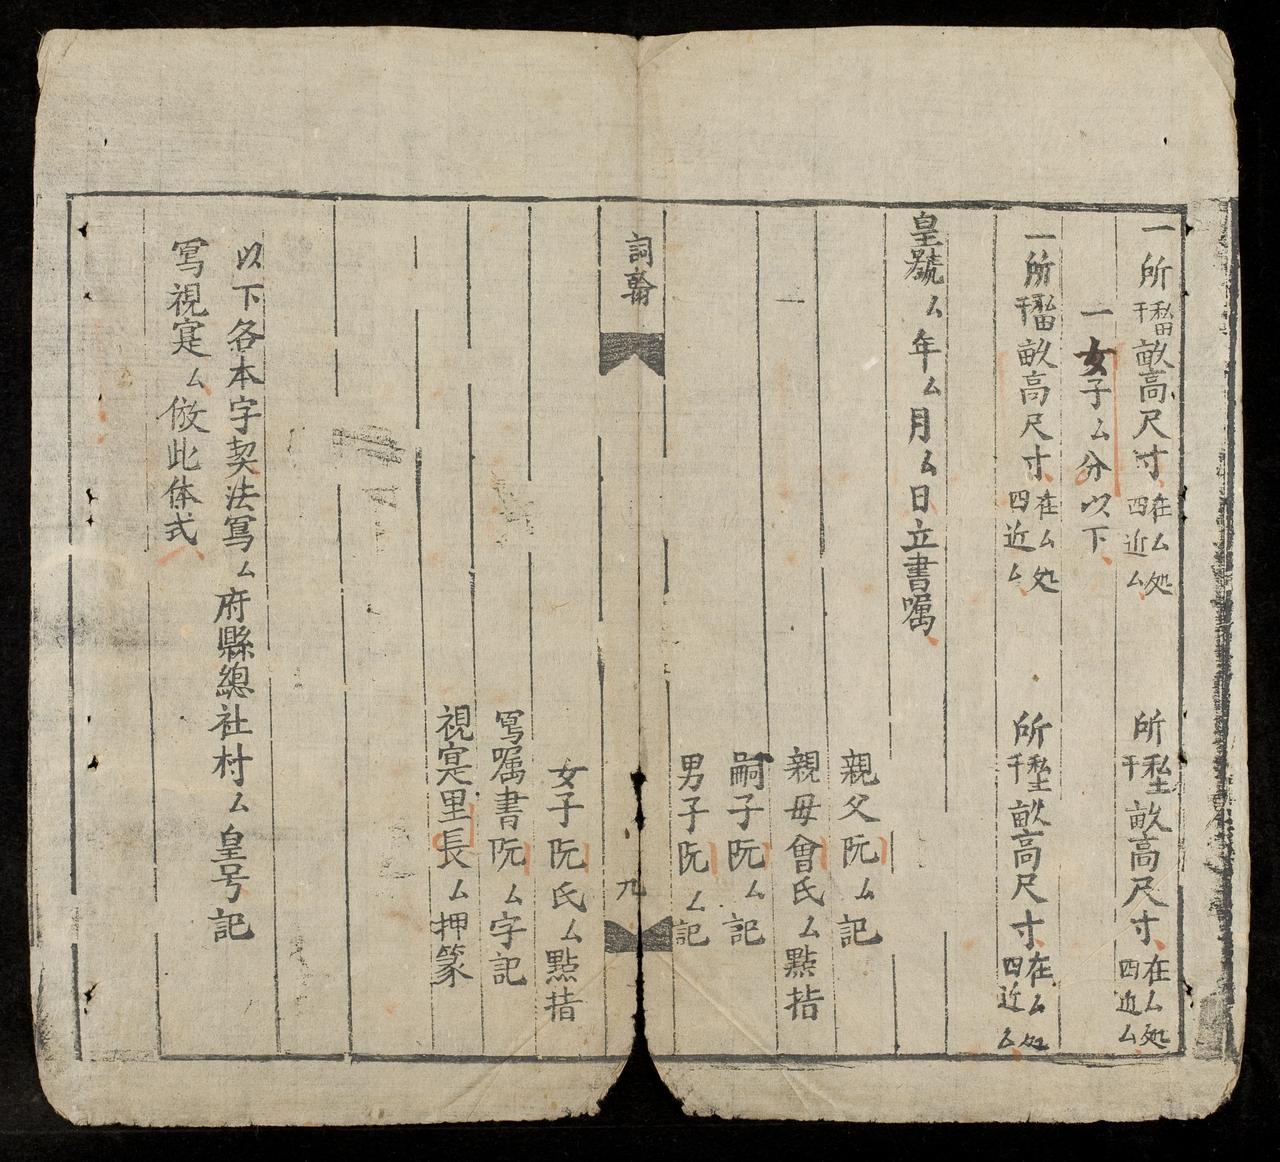 一所私田千畝高尺寸在厶处四近厶　所私土千畝高尺寸在厶处四近厶
一女子厶分以下
一所私田千畝高尺寸在厶处四近厶　所私土千畝高尺寸在厶处四近厶
皇號厶年厶月厶日立書嘱
親父阮厶記
親母會氏厶點指
一　嗣子阮厶記
男子阮厶記
詞翰　九
女子阮氏厶點指
寫嘱書阮厶字記
視寔里長厶押篆
以下各本字契法寫厶府縣總社村厶皇号記
寫視寔厶倣此体式